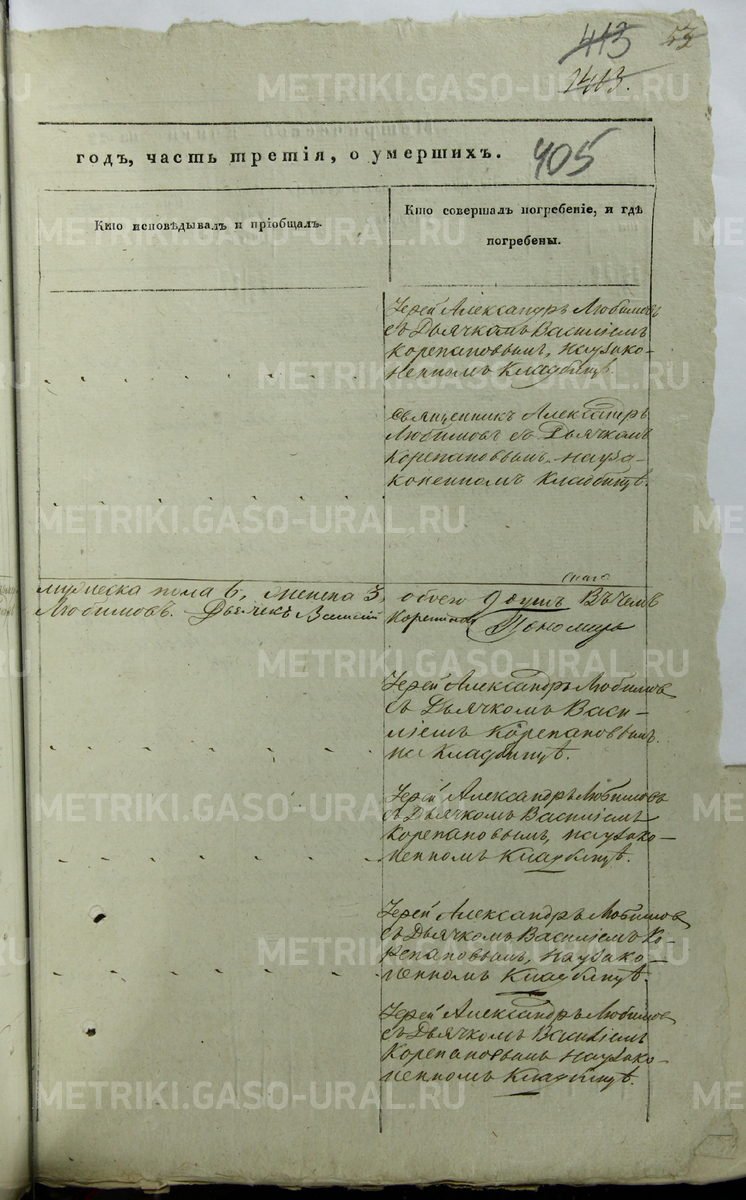 413 53
1413.
METRIKI.GASO-URAL.RU
годъ, часть третія, о умершихъ. 405
Кто исповѣдывалъ и пріобщалъ.
Кто совершалъ погребеніе, и гдѣ
погребены.
Іерей Александръ Любимовъ
съ Дьячкомъ Василіемъ
Корепановымъ, на узако-
ненномъ Кладбищѣ.
Священникъ Александръ
Любимовъ съ Дьячкомъ
Корепановымъ на уза-
коненномъ Кладбищѣ.
мужеска пола 6, женска 3, обоего 9 душъ Въ чемъ
Любимовъ. Дьячекъ Василій Пономарь
Іерей Александръ Любимовъ
съ Дьячкомъ Васи-
ліемъ Корепановымъ
на Кладбищѣ.
Іерей Александръ Любимовъ
съ Дьячкомъ Василіемъ
Корепановымъ, на узако-
ненномъ Кладбищѣ.
Іерей Александръ Любимовъ
съ Дьячкомъ Василіемъ Ко-
репановымъ, на узако-
ненномъ Кладбищѣ.
Іерей Александръ Любимовъ
съ Дьячкомъ Василіемъ
Корепановымъ на узако-
ненномъ Кладбищѣ.